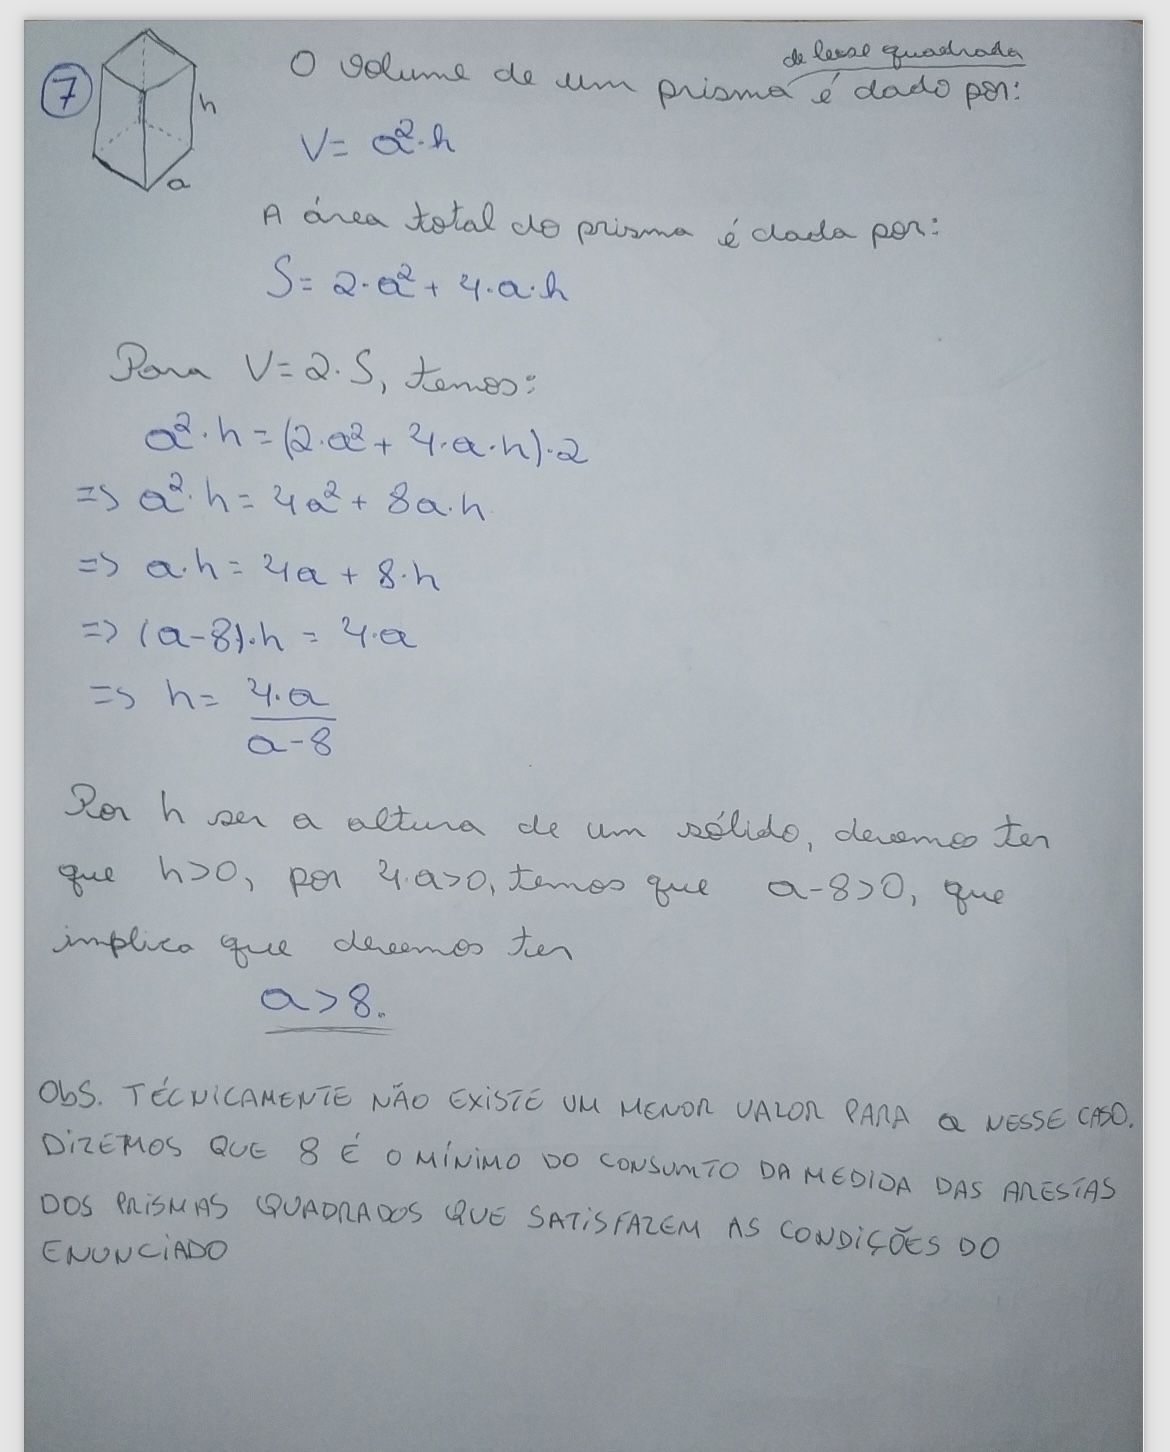 7
h
a
O volume de um prisma de base quadrada é dado por:
V = a²·h
A área total do prisma é dada por:
S = 2·a² + 4·a·h
Para V = 2·S, temos:
a²·h = (2·a² + 4·a·h)·2
=> a²·h = 4a² + 8a·h
=> a·h = 4a + 8·h
=> (a-8)·h = 4·a
=> h = 4·a / a-8
Por h ser a altura de um sólido, devemos ter
que h>0, por 4·a>0, temos que a-8>0, que
implica que devemos ter
a > 8.
ObS. TÉCNICAMENTE NÃO EXISTE UM MENOR VALOR PARA a NESSE CASO.
DIZEMOS QUE 8 É O MÍNIMO DO CONJUNTO DA MEDIDA DAS ARESTAS
DOS PRISMAS QUADRADOS QUE SATISFAZEM AS CONDIÇÕES DO
ENUNCIADO